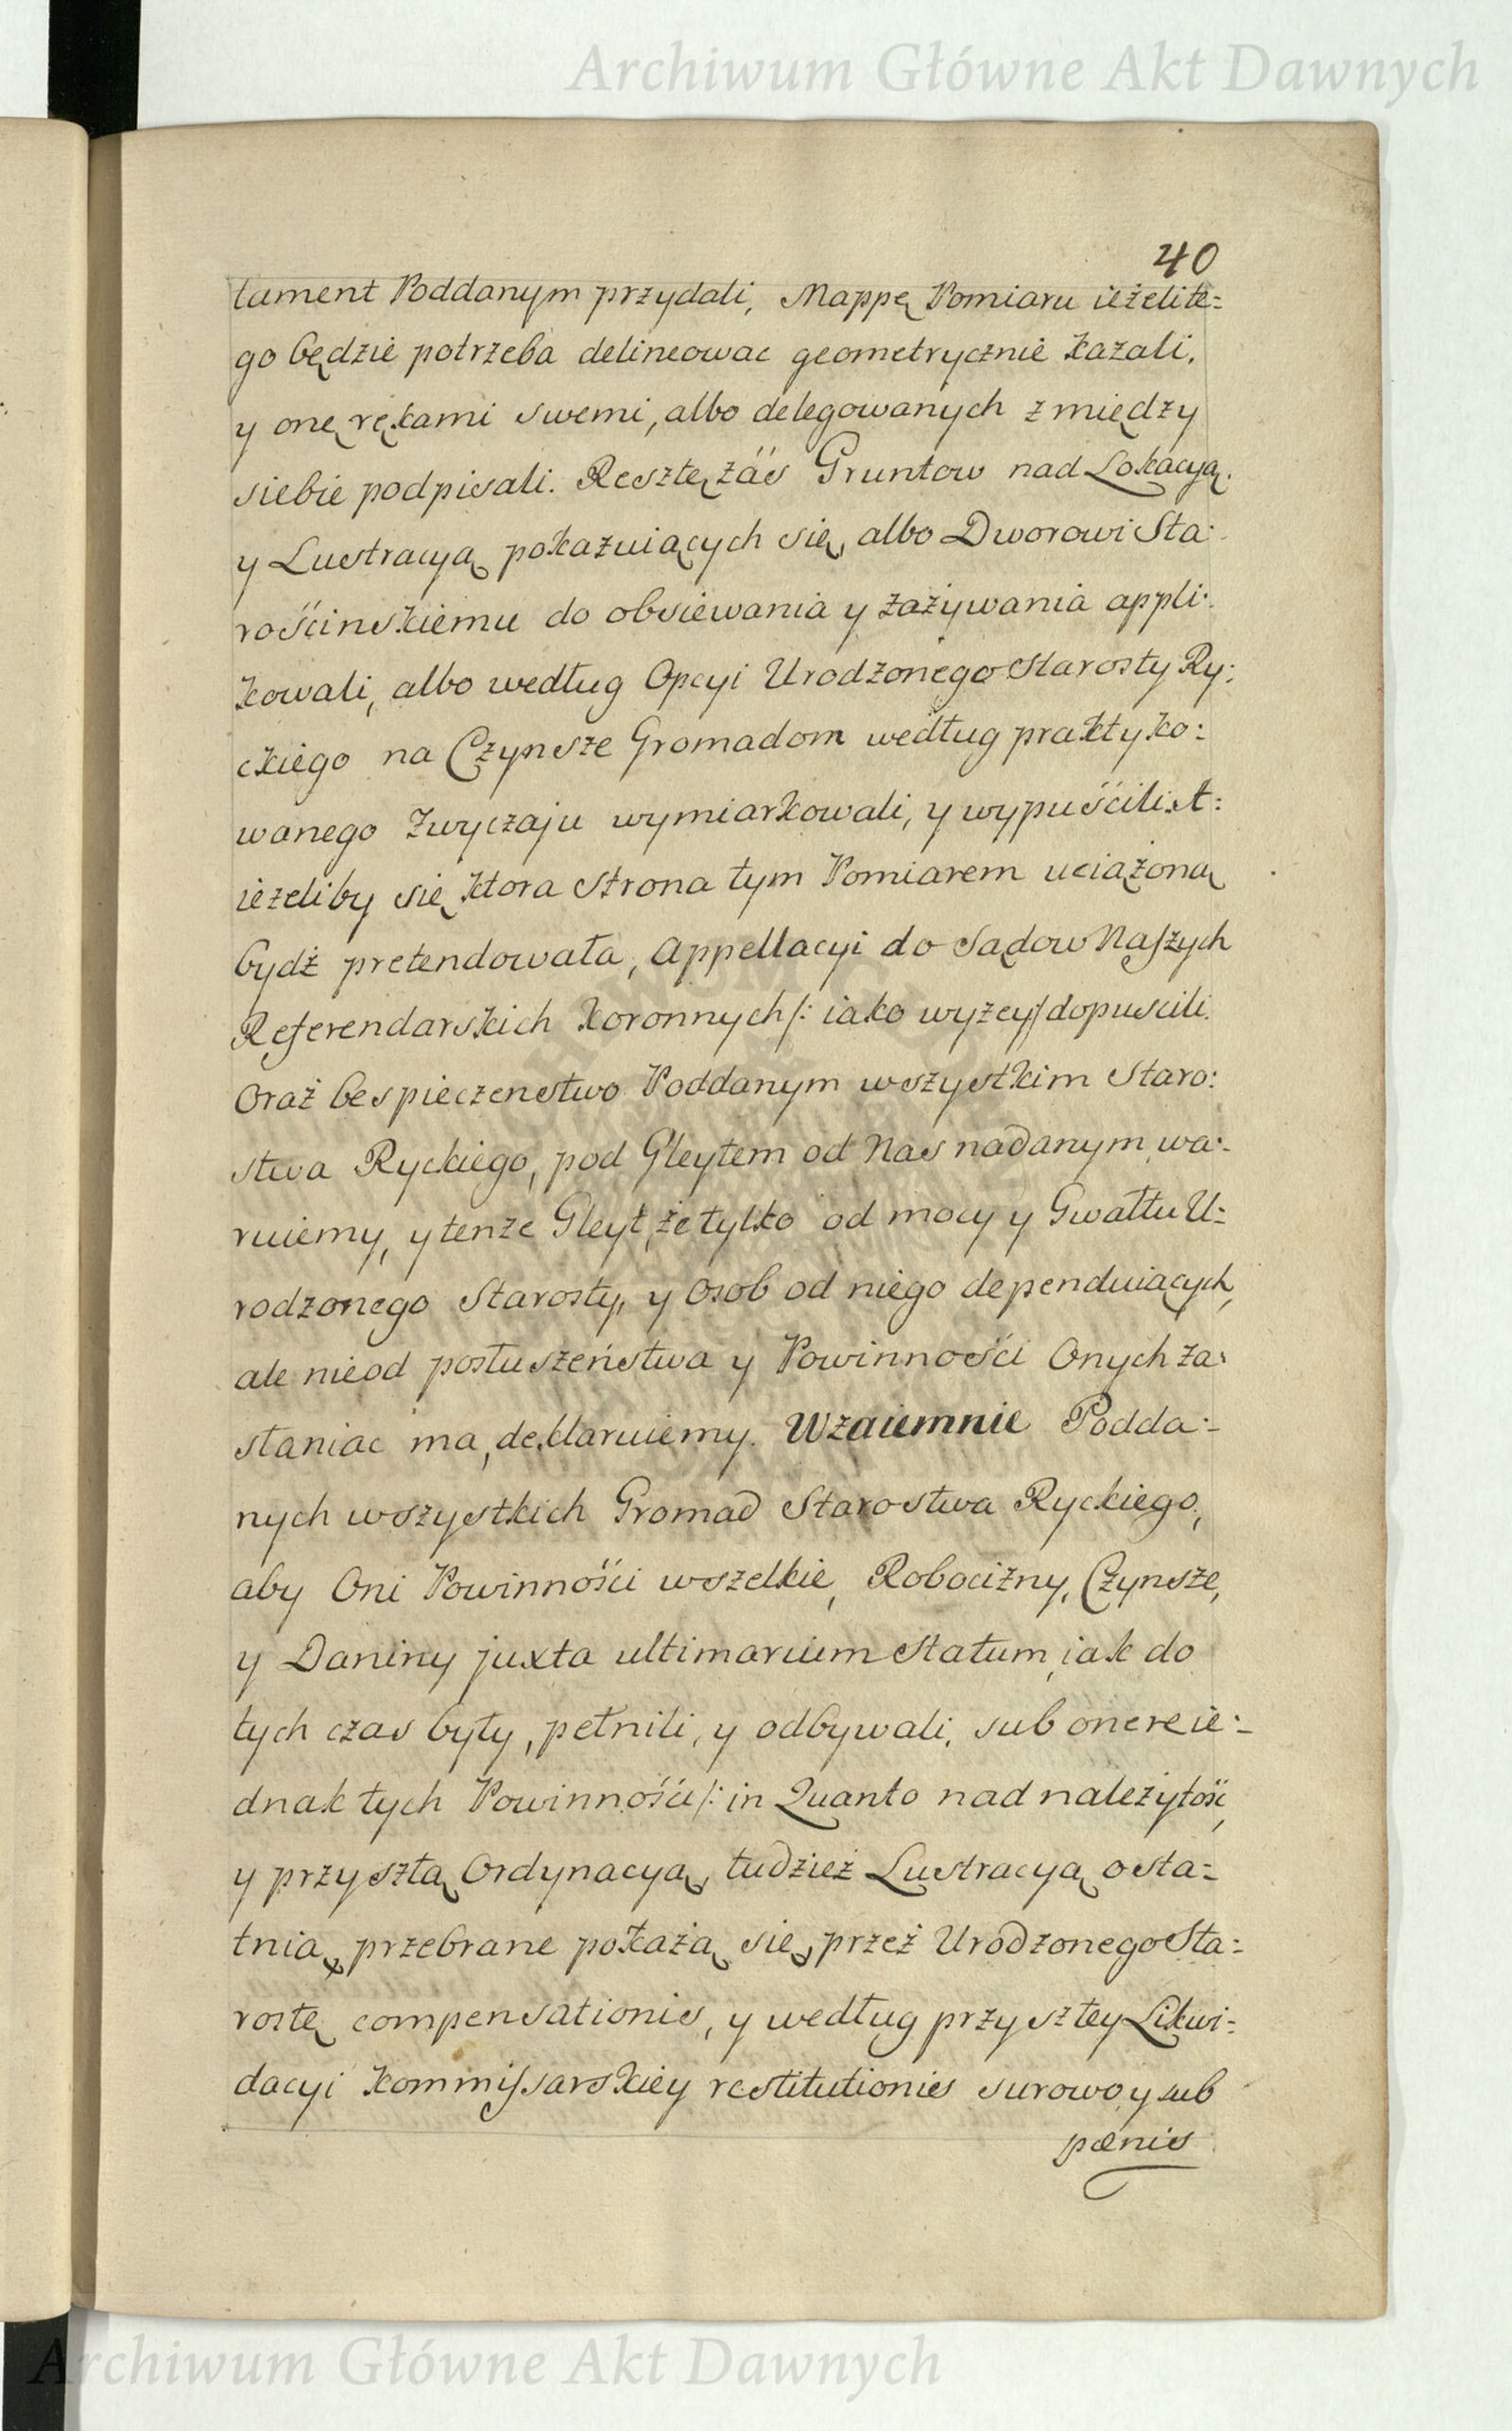 Archiwum Główne Akt Dawnych
40
tament Poddanym przydali, Mappę Pomiaru ieżelite=
go będzie potrzeba delineowac geometrycznie kazali,
y onę rękami swemi, albo delegowanych z między
siebie podpisali. Resztę zaś Gruntow nad Lokacyą
y Lustracyą pokazuiących się, albo Dworowi Sta:
rościnskiemu do obsiewania y zażywania appli:
kowali, albo według Opcyi Urodzonego Starosty Ry:
ckiego na Czynsze Gromadom według praktyko:
wanego zwyczaju wymiarkowali, y wypuścili. A:
ieżeliby się ktora strona tym Pomiarem uciążoną
bydź pretendowała, Appellacyi do Sądow Naszych
Referendarskich Koronnych /: iako wyżey :/ dopuscili.
Oraz bespieczenstwo Poddanym wszystkim Staro:
stwa Ryckiego, pod Gleytem od Nas nadanym wa:
ruiemy, y tenże Gleyt, że tylko od mocy y Gwałtu U:
rodzonego Starosty, y Osob od niego dependuiących,
ale nieod posłuszeństwa y Powinności Onych za:
staniac ma, deklaruiemy. Wzaiemnie Podda:
nych wszystkich Gromad Starostwa Ryckiego,
aby Oni Powinności wszelkie, Robocizny, Czynsze,
y Daniny juxta ultimarium Statum, iak do
tych czas były, pełnili, y odbywali, sub onere ie:
dnak tych Powinności /: in Quanto nad należytość,
y przyszłą Ordynacyą, tudzież Lustracyą osta=
tnią, przebrane pokażą się, przez Urodzonego Sta:
rostę compensationis, y według przyszłey Likwi:
dacyi Kommissarskiey restitutionis surowo, y sub
pænis
Archiwum Główne Akt Dawnych